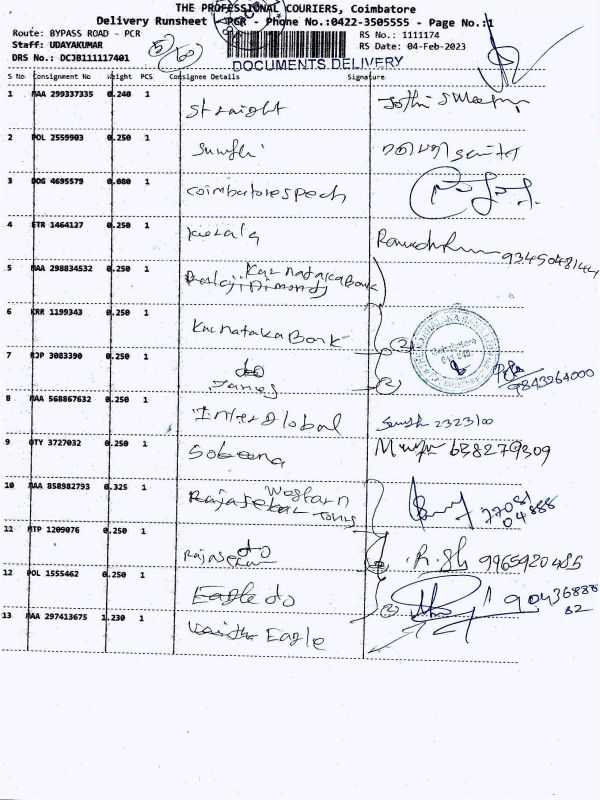 THE PROFESSIONAL COURIERS, Coimbatore
Delivery Runsheet - PCR - Phone No.:0422-3505555 - Page No.:1
Route: BYPASS ROAD - PCR
RS No.: 1111174
Staff: UDAYAKUMAR
RS Date: 04-Feb-2023
DRS No.: DCJB111117401
DOCUMENTS DELIVERY
S No Consignment No Weight PCS Consignee Details Signature
1 MAA 299337335 0.240 1 Straight
2 POL 2559903 0.250 1
3 DDG 4695579 0.080 1 coimbatorespech
4 ETR 1464127 0.250 1 Kerala 9345048144
5 MAA 298834532 0.250 1 Karnataka Bank
6 KRR 1199343 0.250 1 Karnataka Bank
7 BJP 3083390 0.250 1 do James 9843264000
8 MAA 568867632 0.250 1 Inter global
9 OTY 3727032 0.250 1 Sobeena 638279309
10 MAA 858982793 0.325 1 Western Tours 77081 04888
11 MTP 1209076 0.250 1 Rajasekar do 9965920485
12 POL 1555462 0.250 1 Eagle do 90436888 82
13 MAA 297413675 1.230 1 Eagle